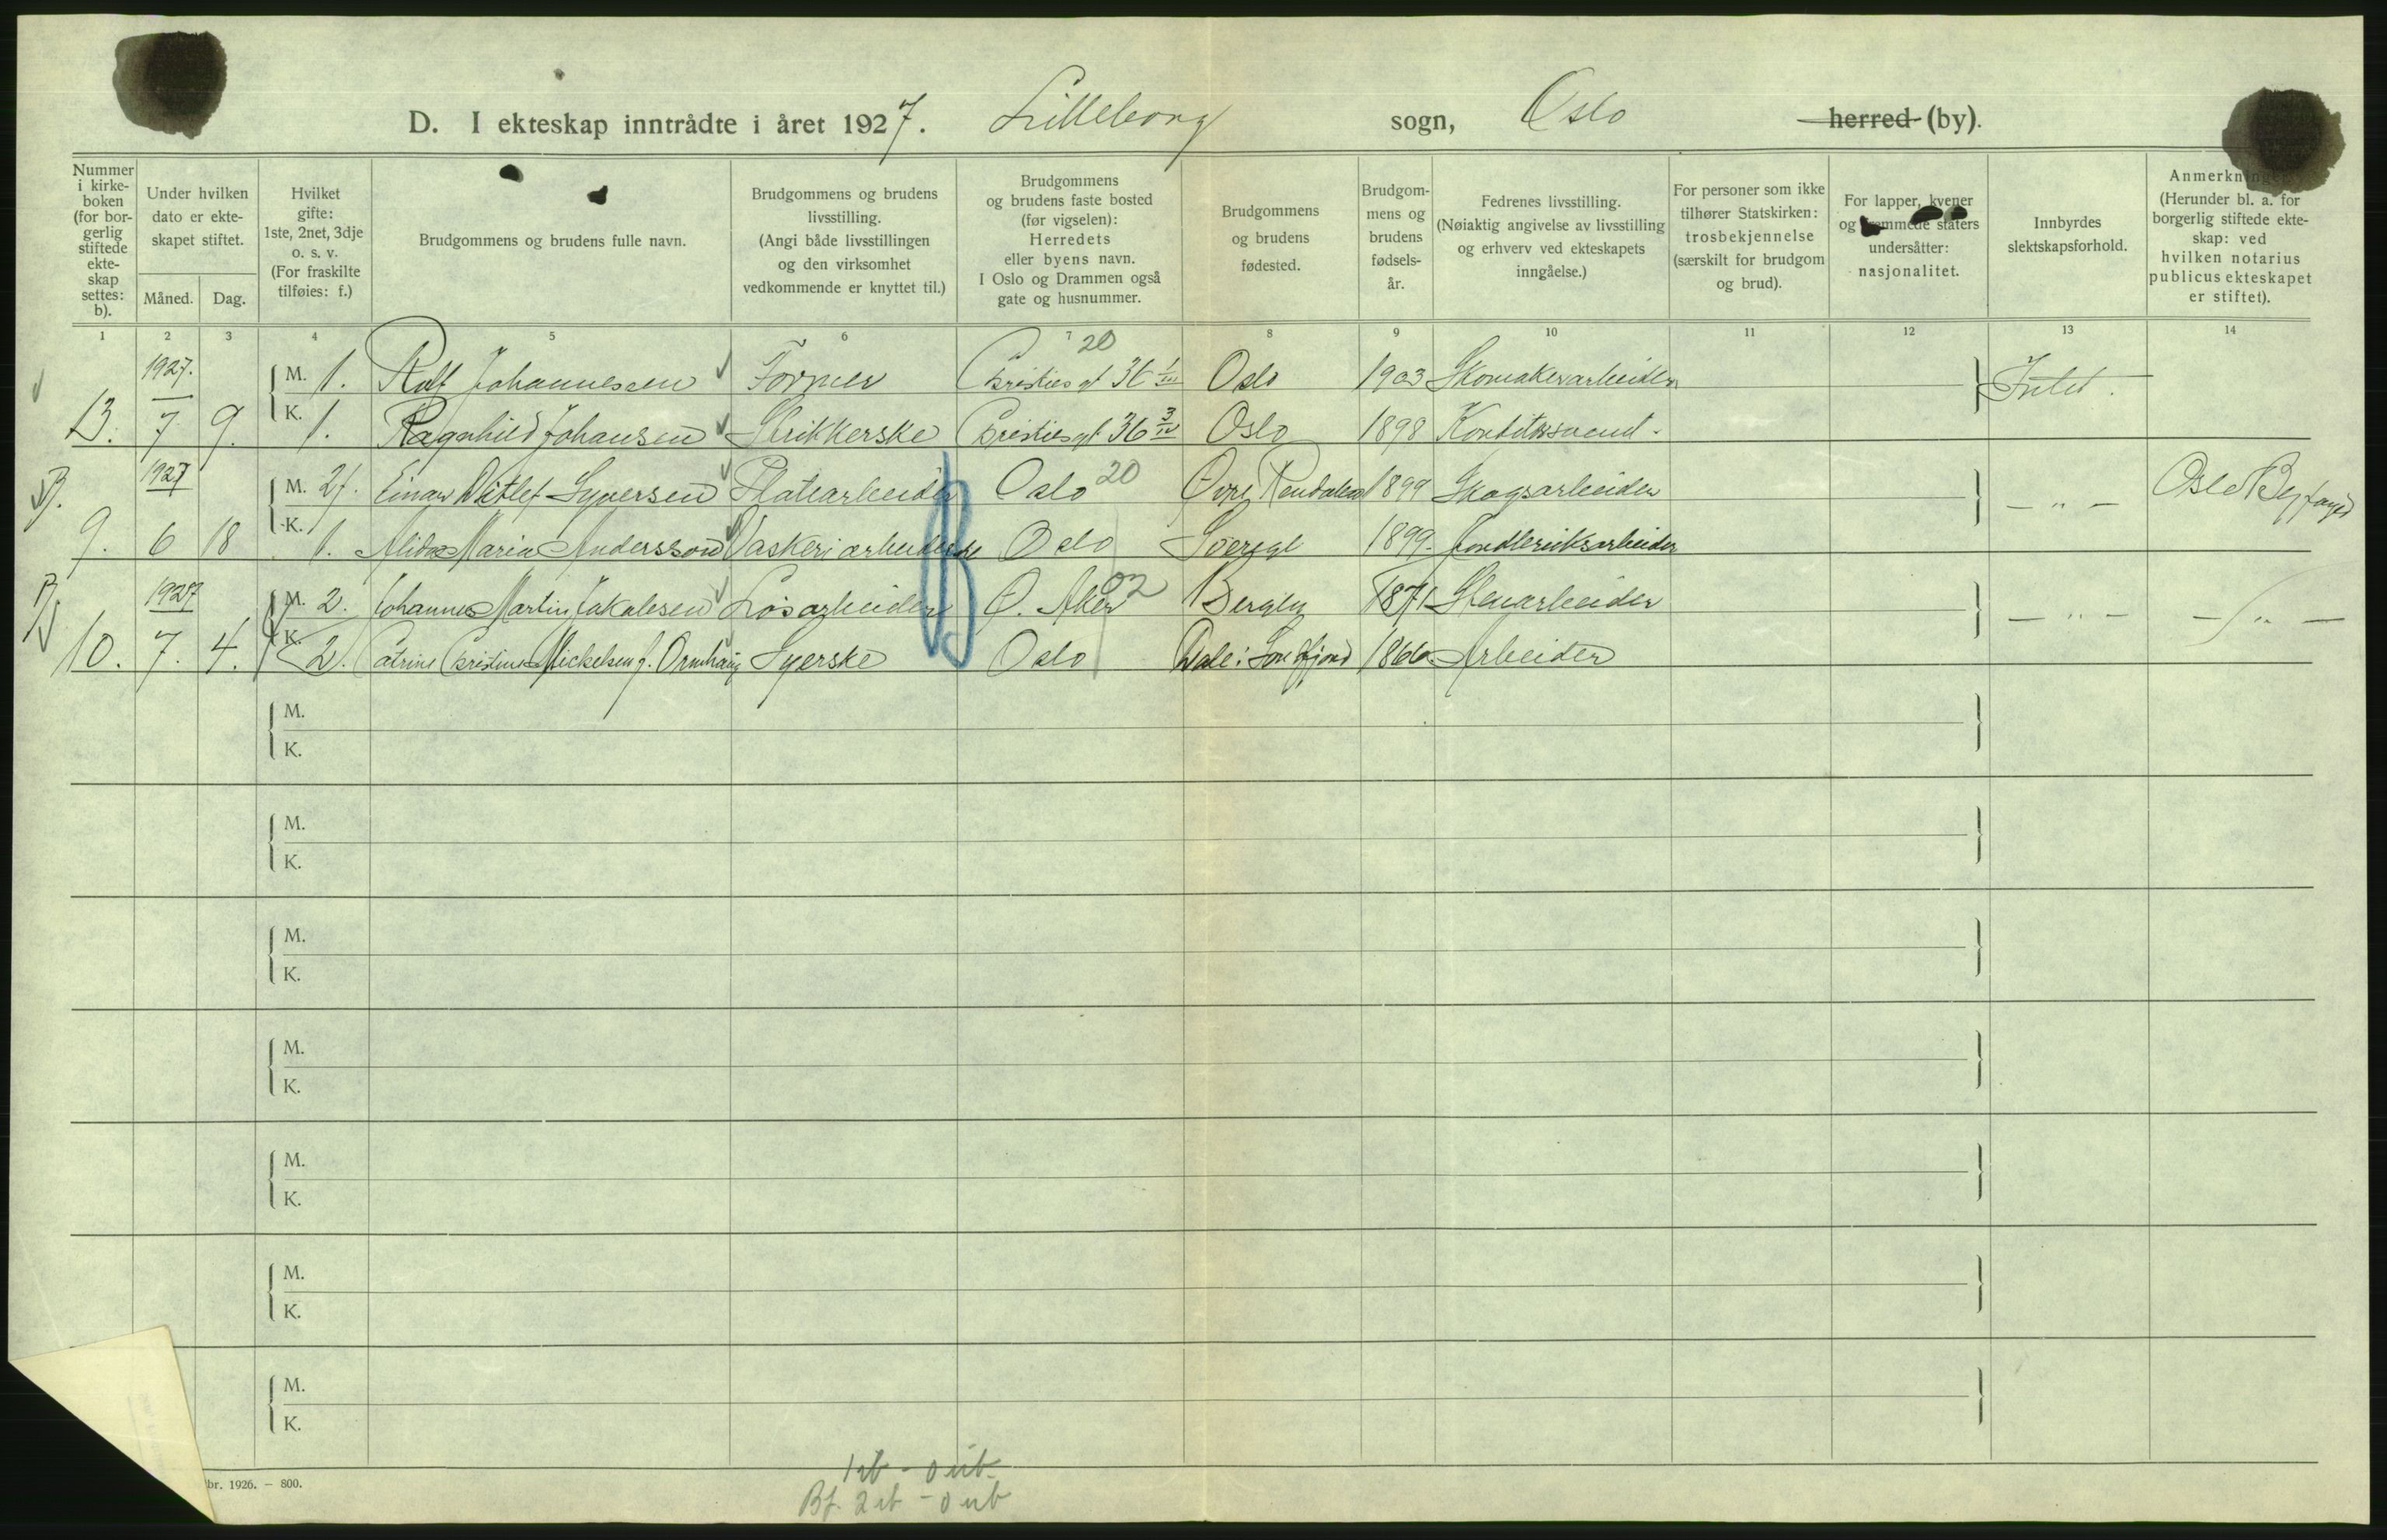 D. I ekteskap inntrådte i året 1927. Lilleborg sogn, Oslo herred (by).
Nummer i kirkeboken (for borgerlig stiftede ekteskap settes: b).
Under hvilken dato er ekteskapet stiftet.
Måned. Dag.
Hvilket gifte: 1ste, 2net, 3dje o. s. v. (For fraskilte tilføies: f.)
Brudgommens og brudens fulle navn.
Brudgommens og brudens livsstilling. (Angi både livsstillingen og den virksomhet vedkommende er knyttet til.)
Brudgommens og brudens faste bosted (før vigselen): Herredets eller byens navn. I Oslo og Drammen også gate og husnummer.
Brudgommens og brudens fødested.
Brudgommens og brudens fødselsår.
Fedrenes livsstilling. (Nøiaktig angivelse av livsstilling og erhverv ved ekteskapets inngåelse.)
For personer som ikke tilhører Statskirken: trosbekjennelse (særskilt for brudgom og brud).
For lapper, kvener og fremmede staters undersåtter: nasjonalitet.
Innbyrdes slektskapsforhold.
Anmerkninger. (Herunder bl. a. for borgerlig stiftede ekteskap: ved hvilken notarius publicus ekteskapet er stiftet).
1 2 3 4 5 6 7 8 9 10 11 12 13 14
20
1927. M. 1. Rolf Johannessen Former Christies gt 36 1/III Oslo 1903 Skomakerarbeider Intet.
13. 7 9. K. 1. Ragnhild Johansen Strikkerske Christies gt 36 3/IV Oslo 1898 Konditorsvend.
B. 1927 M. 2f. Einar Ditlef Syversen Platearbeider Oslo 20 Øvre Rendalen 1899 Skogsarbeider — " — Oslo Byfoged
9. 6 18 K. 1. Alida Maria Andersson Vaskeriarbeiderske Oslo 1899.
B. 1927 M. 2. Johannes Martin Jakobsen Løsarbeider Ø. Aker 02 1871 Stenarbeider — " — — " —
10. 7. 4. K. 2. Catrine Cristine Mickelsen f. Syerske Oslo Dale i Søndfjord 1866. Arbeider
B
M.
K.
M.
K.
M.
K.
M.
K.
M.
K.
M.
K.
M.
K.
br. 1926. — 800.
1 ib - 0 uib.
Bf. 2 ib - 0 uib